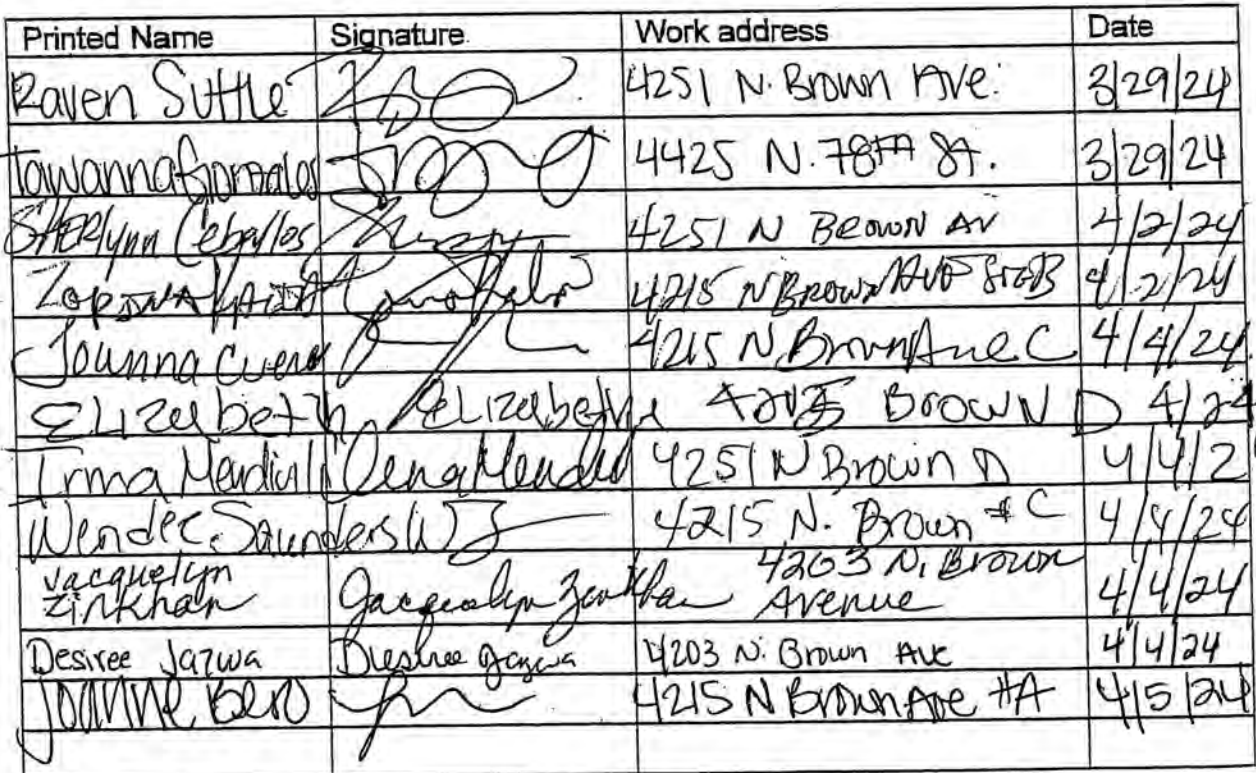 Printed Name Signature Work address Date
Raven Suttle 4251 N. Brown Ave. 3/29/24
Tawanna Gonzalos 4425 N. 78th St. 3/29/24
SHERlynn Ceballos 4251 N BROWN AV 4/2/24
4215 N BROWN AVE STE B 4/2/24
Joanna 4215 N. Brown Ave C 4/4/24
ELIZabeth ELIZabeth BROWN D 4/24
Irma 4251 N Brown D 4/4/2
Wendee Saunders 4215 N. Brown #C 4/4/24
Jacquelyn
Zinkhan Jacquelyn Zinkhan 4203 N. Brown
Avenue 4/4/24
Desiree Jazwa Desiree Jazwa 4203 N. Brown Ave 4/4/24
Joanne Bero 4215 N Brown Ave #A 4/5/24